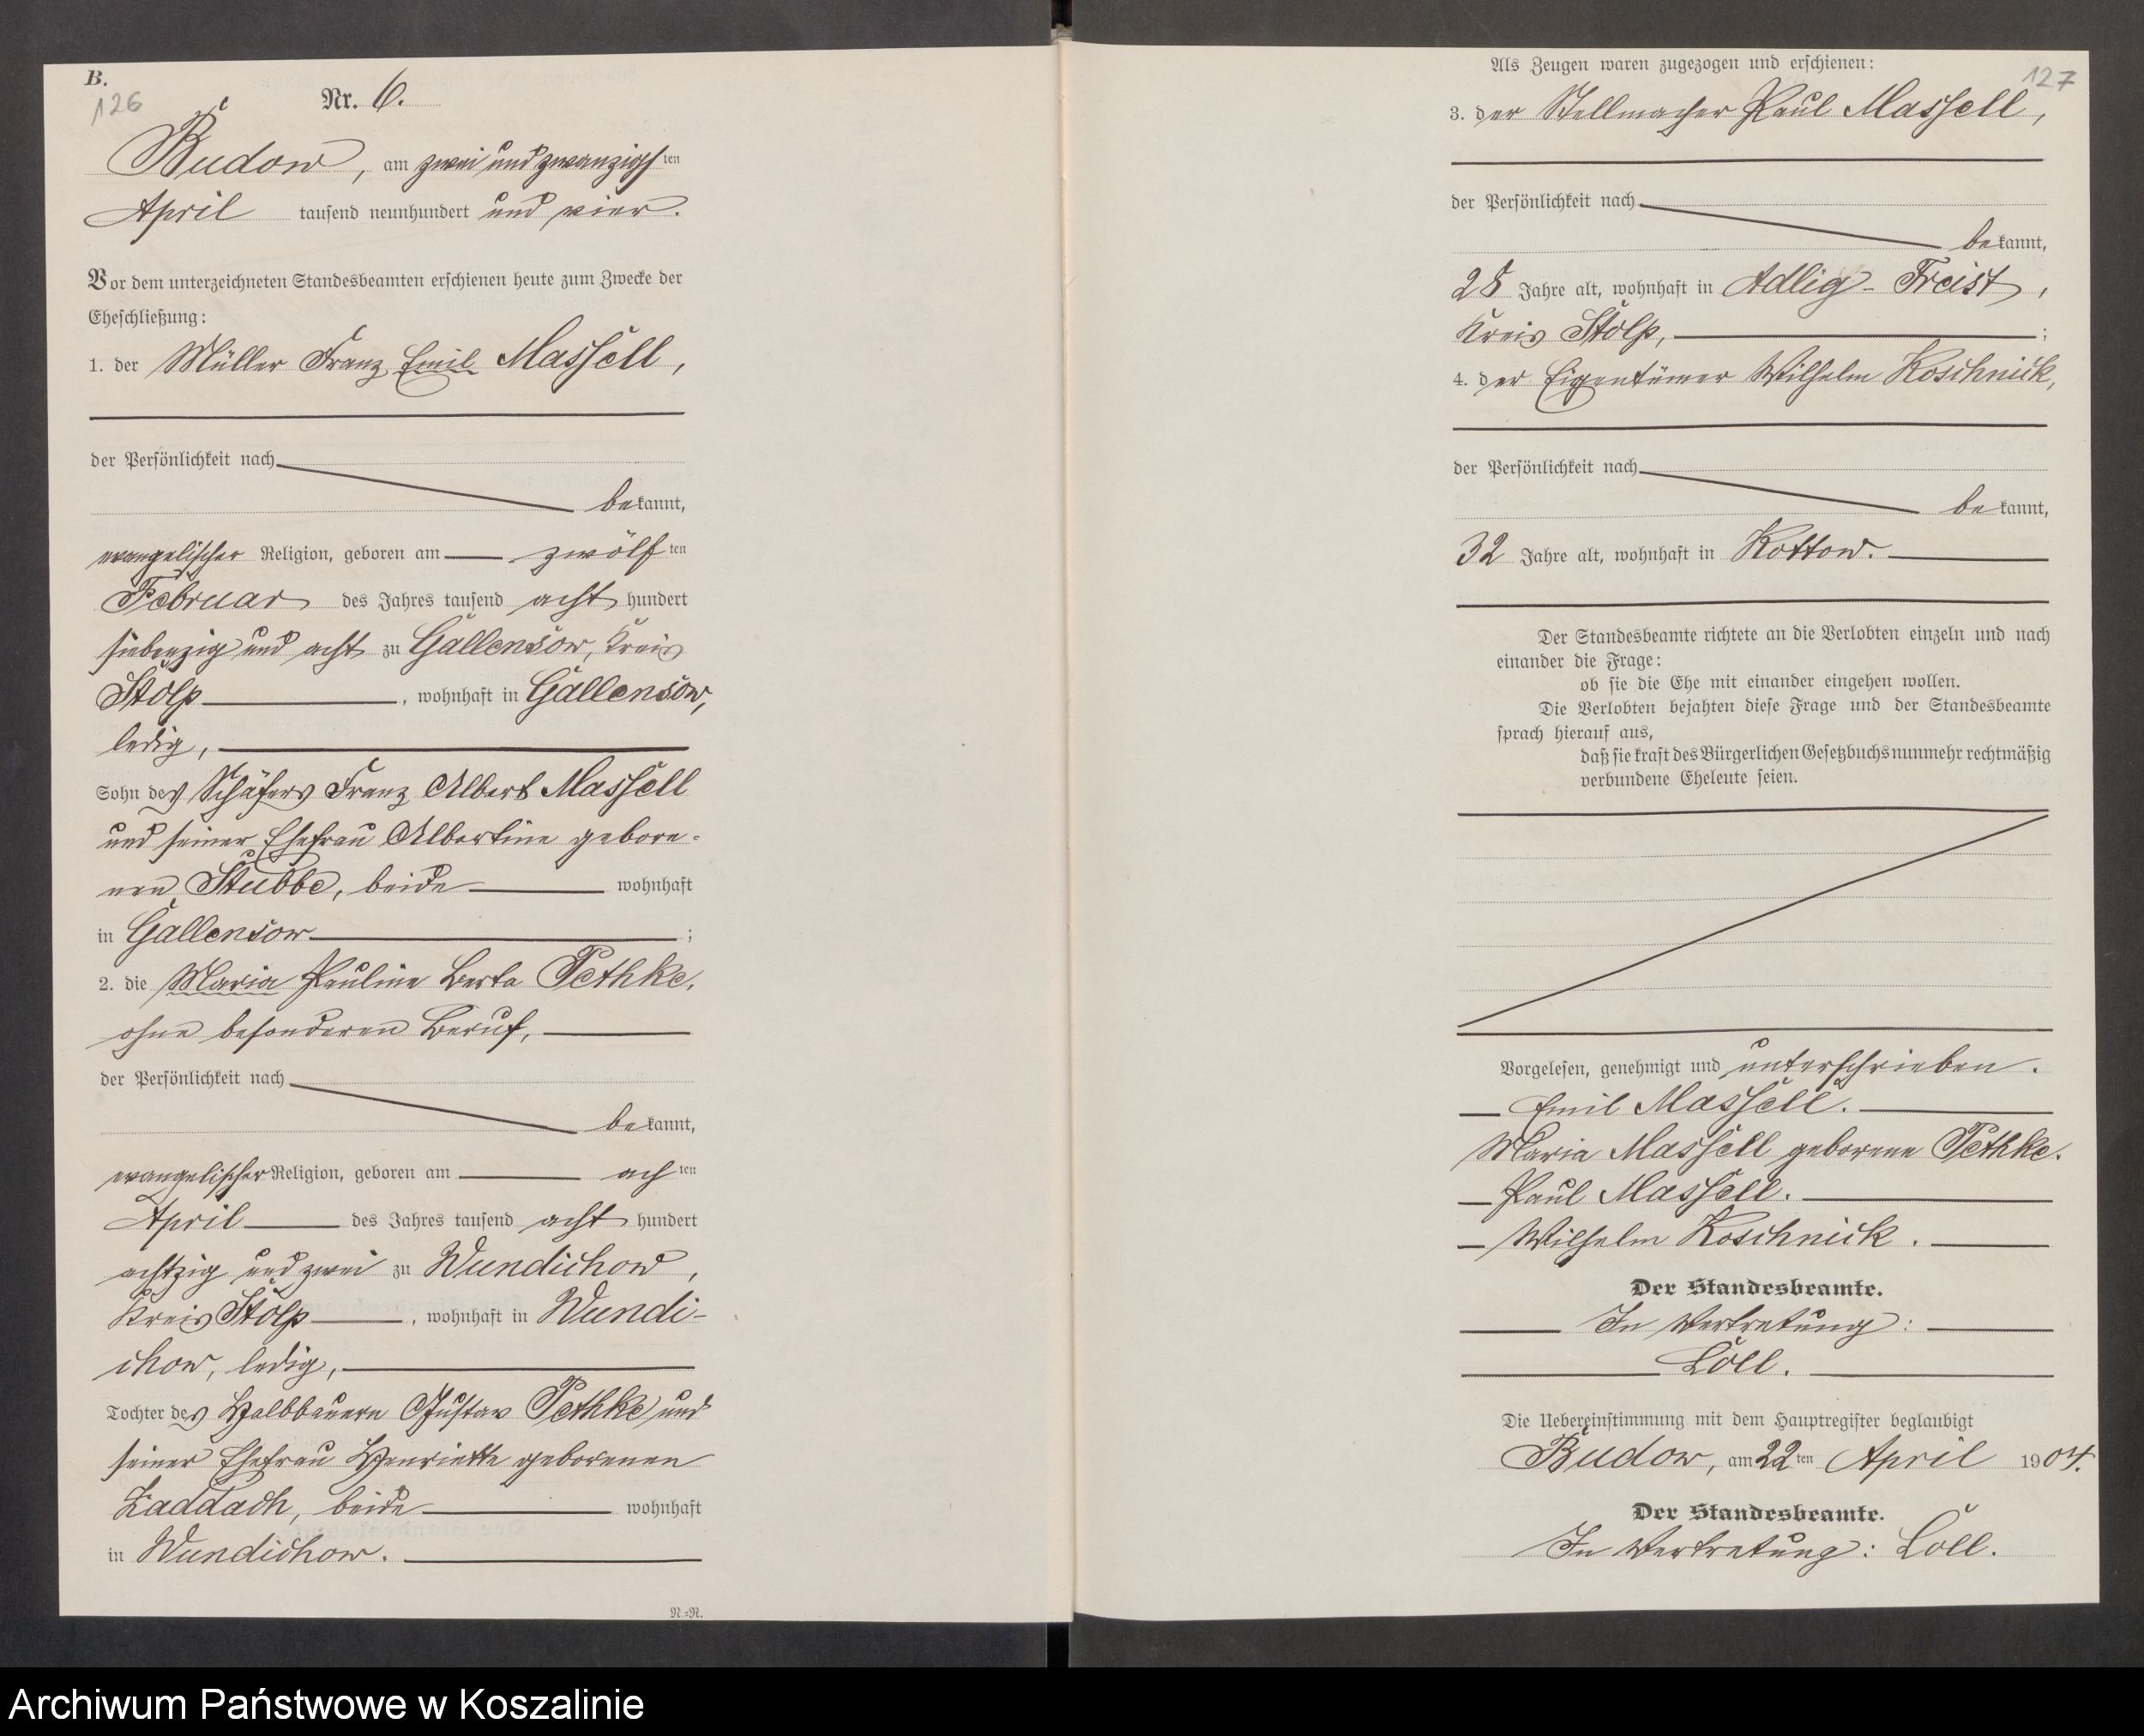 B.
126
Nr. 6.
Budow, am zwei und zwanzigsten
April tausend neunhundert und vier.
Vor dem unterzeichneten Standesbeamten erschienen heute zum Zwecke der
Eheschließung:
1. der Müller Franz Emil Massell,
der Persönlichkeit nach
bekannt,
evangelischer Religion, geboren am zwölften
Februar des Jahres tausend acht hundert
siebenzig und acht zu Gallensow, Kreis
Stolp, wohnhaft in Gallensow,
ledig,
Sohn des Schäfers Franz Albert Massell
und seiner Ehefrau Albertine gebore-
nen Stubbe, beide wohnhaft
in Gallensow;
2. die Maria Pauline Berta Pethke,
ohne besonderen Beruf,
der Persönlichkeit nach
bekannt,
evangelischer Religion, geboren am achten
April des Jahres tausend acht hundert
achtzig und zwei zu Wundichow,
Kreis Stolp, wohnhaft in Wundi-
chow, ledig,
Tochter des Halbbauern Gustav Pethke und
seiner Ehefrau Henriette geborenen
Laddach, beide wohnhaft
in Wundichow.
N.-R.
127
Als Zeugen waren zugezogen und erschienen:
3. der Stellmacher Paul Massell,
der Persönlichkeit nach
bekannt,
28 Jahre alt, wohnhaft in Adlig-Freist,
Kreis Stolp,;
4. der Eigentümer Wilhelm Koschnick,
der Persönlichkeit nach
bekannt,
32 Jahre alt, wohnhaft in Kottow.
Der Standesbeamte richtete an die Verlobten einzeln und nach
einander die Frage:
ob sie die Ehe mit einander eingehen wollen.
Die Verlobten bejahten diese Frage und der Standesbeamte
sprach hierauf aus,
daß sie kraft des Bürgerlichen Gesetzbuchs nunmehr rechtmäßig
verbundene Eheleute seien.
Vorgelesen, genehmigt und unterschrieben.
Emil Massell.
Maria Massell geborene Pethke.
Paul Massell.
Wilhelm Koschnick.
Der Standesbeamte.
In Vertretung:
Löll.
Die Uebereinstimmung mit dem Hauptregister beglaubigt
Budow, am 22ten April 1904.
Der Standesbeamte.
In Vertretung: Löll.
Archiwum Państwowe w Koszalinie